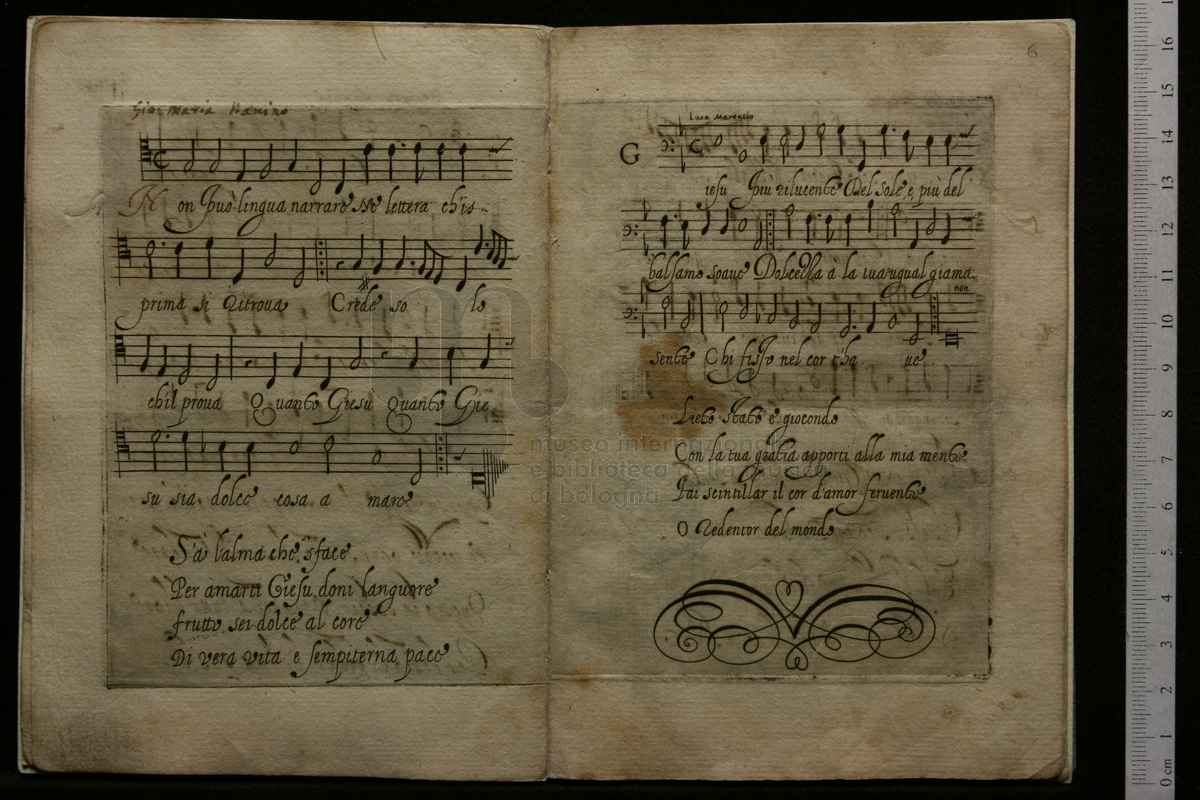 Gio: maria Nanino
Non può lingua narrare Ne lettera ch'is-
prima si ritrova Crede so lo
ch'il prova Quanto Giesù Quanto Gie-
sù sia dolce cosa a mare
Sa l'alma che sface
Per amarti Giesu doni languore
frutto sei dolce al core
Di vera vita e sempiterna pace
6
Luca Marentio
G iesu Più rilucente Del sole e più del
balsamo soave Dolcezza à la tua ugual giamai
non
sente Chi fisso nel cor t'ha ue
Lieto stato e giocondo
Con la tua gratia apporti alla mia mente
Fai scintillar il cor d'amor feruente
O Redentor del mondo
museo internazionale
e biblioteca della musica
di bologna
0 cm 1 2 3 4 5 6 7 8 9 10 11 12 13 14 15 16